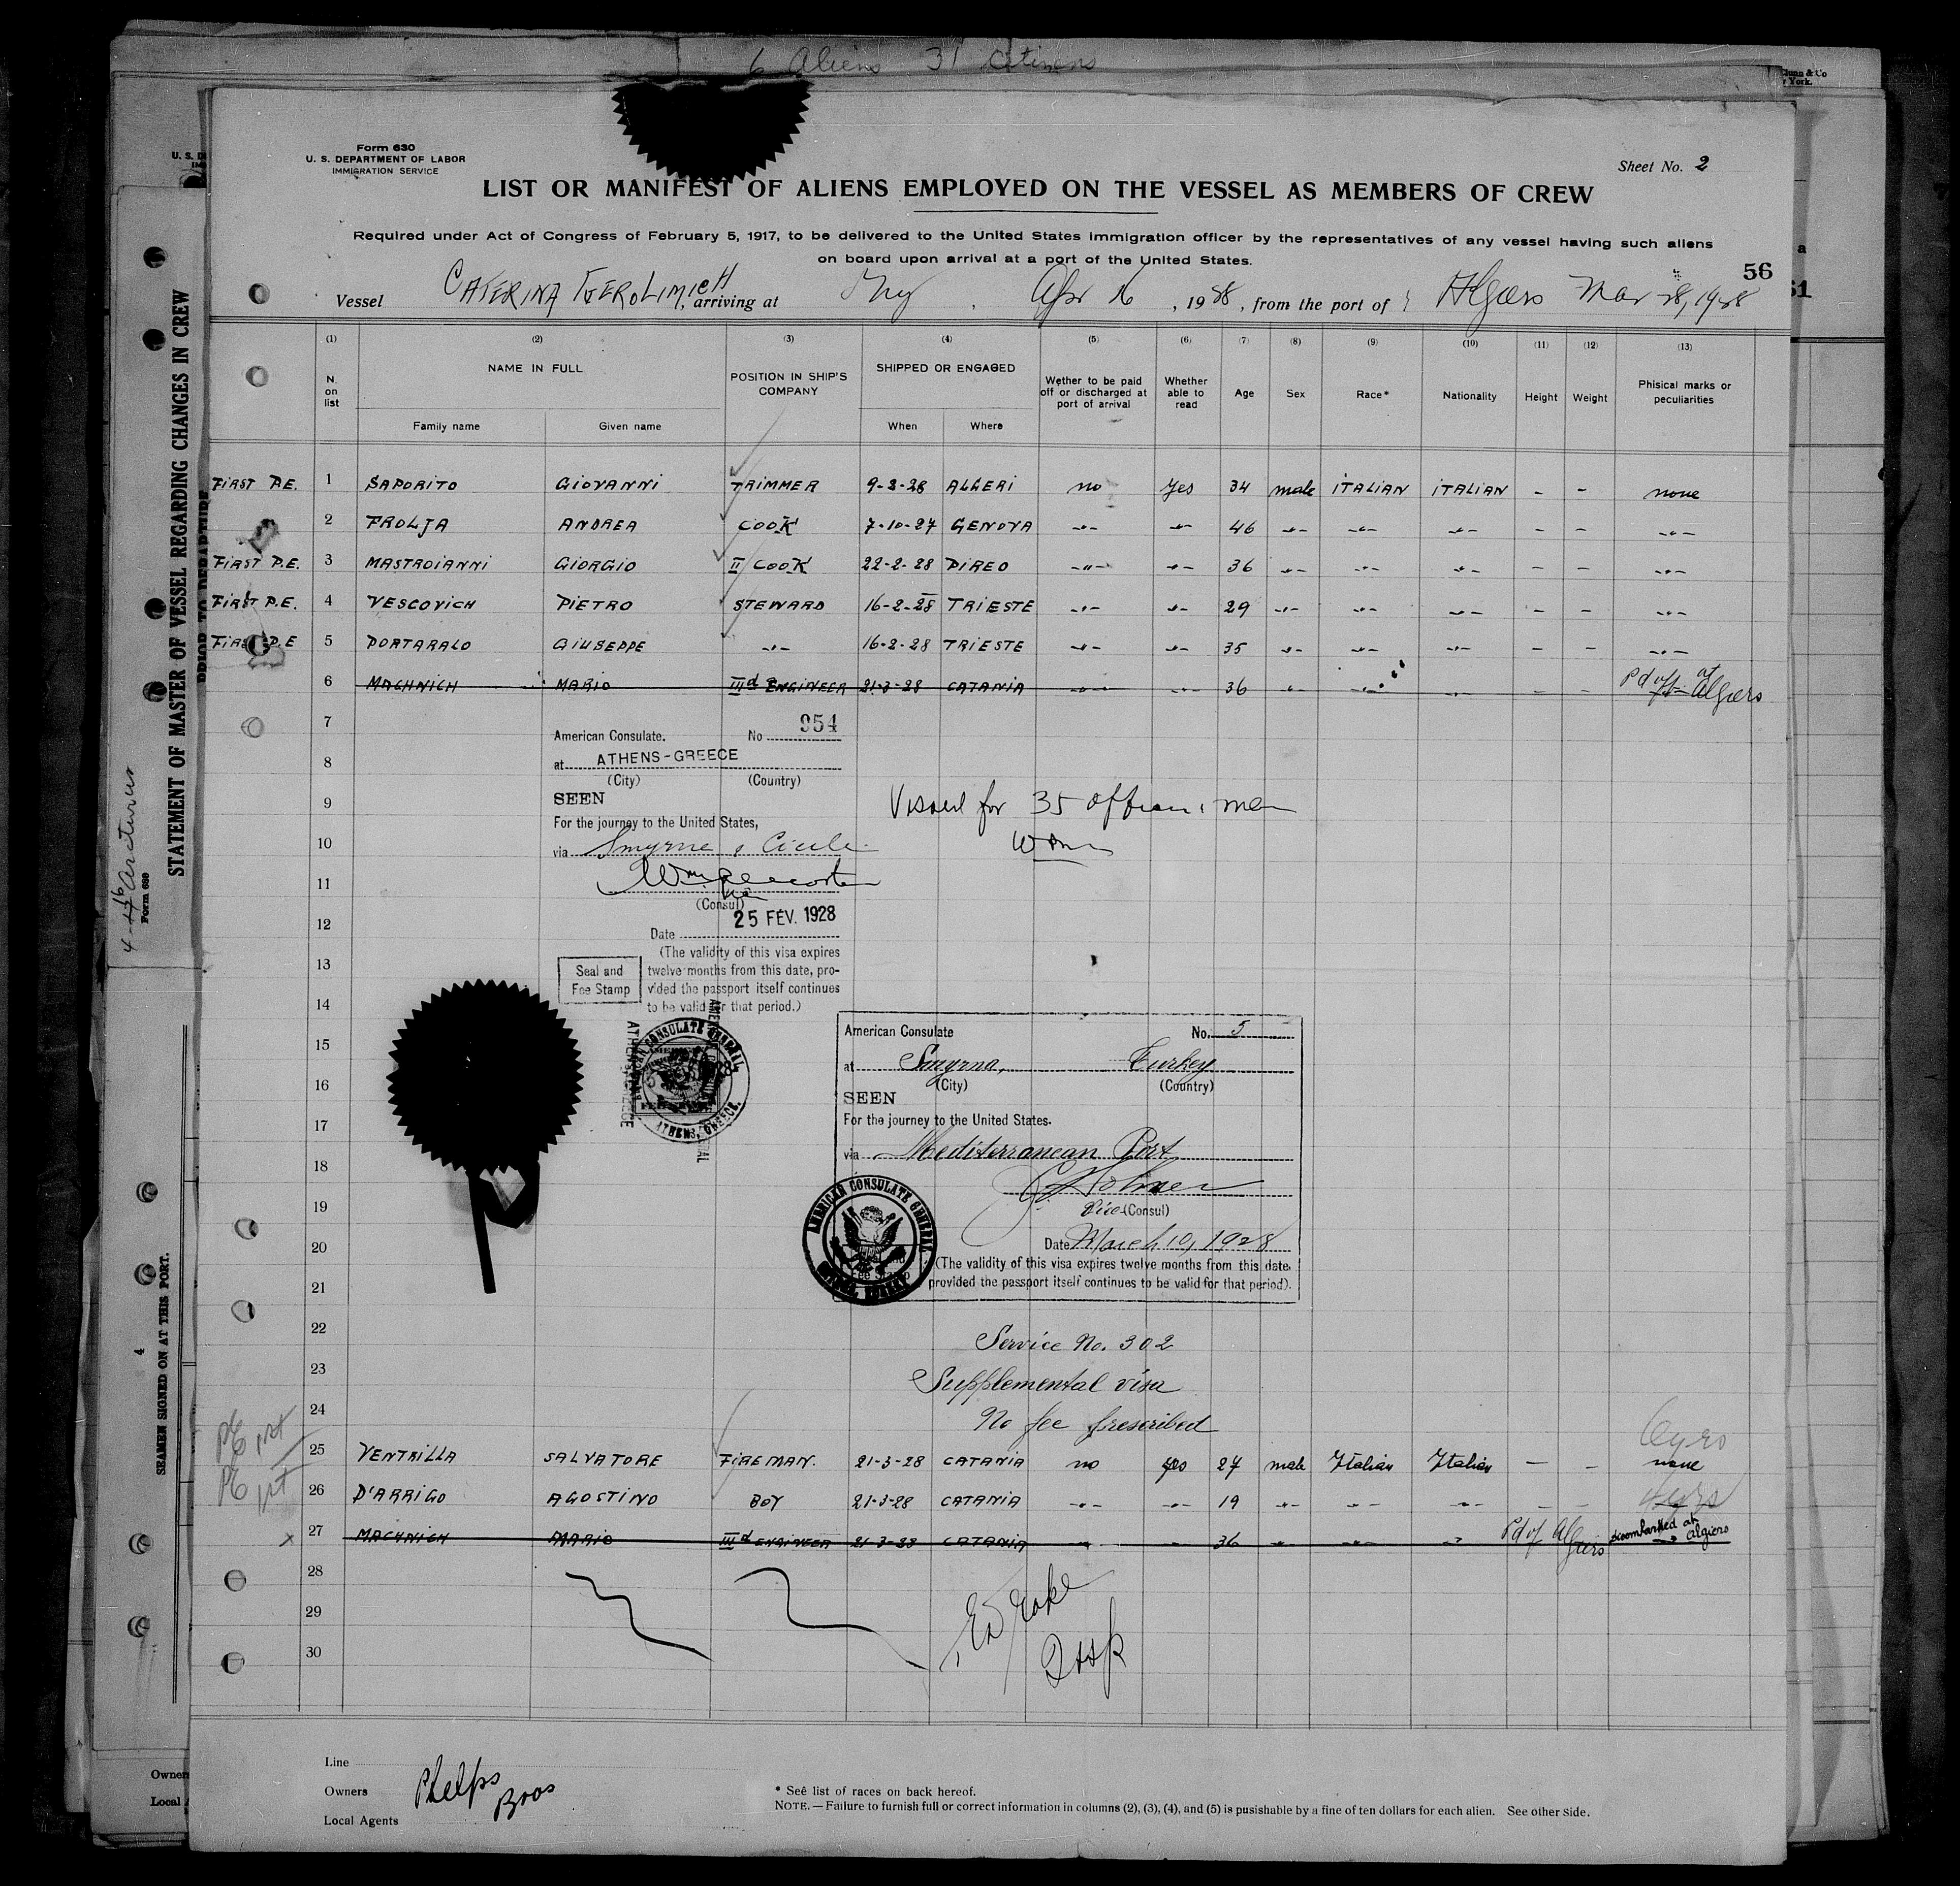 6 Aliens 31 Citizens
Form 630
U. S. DEPARTMENT OF LABOR
IMMIGRATION SERVICE
Sheet No. 2
LIST OR MANIFEST OF ALIENS EMPLOYED ON THE VESSEL AS MEMBERS OF CREW
Required under Act of Congress of February 5, 1917, to be delivered to the United States immigration officer by the representatives of any vessel having such aliens
on board upon arrival at a port of the United States.
56
Vessel CATERINA GEROLIMICH, arriving at Ny, Apr 16, 1928, from the port of Algiers Mar 28, 1928
(1) (2) (3) (4) (5) (6) (7) (8) (9) (10) (11) (12) (13)
N. on list NAME IN FULL POSITION IN SHIP'S COMPANY SHIPPED OR ENGAGED Wether to be paid off or discharged at port of arrival Whether able to read Age Sex Race* Nationality Height Weight Phisical marks or peculiarities
Family name Given name When Where
FIRST P.E. 1 SAPORITO GIOVANNI TRIMMER 9-3-28 ALGERI no yes 34 male ITALIAN ITALIAN - - none
2 PROLJA ANDREA COOK 7-10-27 GENOVA -"- -"- 46 -"- -"- -"- - - -"-
FIRST P.E. 3 MASTROIANNI GIORGIO II COOK 22-2-28 PIREO -"- -"- 36 -"- -"- -"- - - -"-
FIRST P.E. 4 VESCOVICH PIETRO STEWARD 16-2-28 TRIESTE -"- -"- 29 -"- -"- -"- - - -"-
FIRST P.E 5 PORTARALO GIUSEPPE -"- 16-2-28 TRIESTE -"- -"- 35 -"- -"- -"- - - -"-
6 MACHNICH MARIO IIId ENGINEER 21-3-28 CATANIA -"- -"- 36 -"- -"- -"- - - Pd off at Algiers
7
American Consulate. No 954
8
at ATHENS-GREECE
(City) (Country)
9
SEEN
Visaed for 35 officers & men
For the journey to the United States,
10
via Smyrne &
11
(Consul)
12
25 FÉV. 1928
Date
13
(The validity of this visa expires
Seal and Fee Stamp
twelve months from this date, pro-
vided the passport itself continues
14
to be valid for that period.)
AMERICAN CONSULATE GENERAL
ATHENS, GREECE.
15
American Consulate No. 5
at Smyrna, Turkey
16
(City) (Country)
SEEN
17
For the journey to the United States.
via Mediterranean Port
18
19
Vice (Consul)
AMERICAN CONSULATE GENERAL
20
Date March 10, 1928
(The validity of this visa expires twelve months from this date,
21
provided the passport itself continues to be valid for that period).
22
Service No. 302
23
Supplemental visa
24
No fee prescribed
6 yrs
PE 1st 25 VENTRILLA SALVATORE FIREMAN. 21-3-28 CATANIA no yes 27 male Italian Italian - - none
4 yrs
PE 1st 26 D'ARRIGO AGOSTINO BOY 21-3-28 CATANIA -"- -"- 19 -"- -"- -"- - - -"-
x 27 MACHNICH MARIO IIId ENGINEER 21-3-28 CATANIA -"- -"- 36 -"- -"- -"- Pd of Algiers disembarked at Algiers
28
29
30
Line
Owners Phelps Bros
Local Agents
* See list of races on back hereof.
NOTE. — Failure to furnish full or correct information in columns (2), (3), (4), and (5) is pusishable by a fine of ten dollars for each alien. See other side.
STATEMENT OF MASTER OF VESSEL REGARDING CHANGES IN CREW
PRIOR TO DEPARTURE
Form 689
SEAMEN SIGNED ON AT THIS PORT.
4